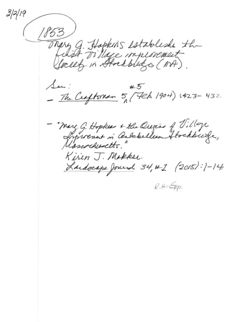 3/2/19
1853
Mary G. Hopkins establishes the
first village improvement
Society in Stockbridge (MA).
See: #5
- The Craftsman 5 ^ (Feb 1904): 423-432.
- "Mary G Hopkins & the Origins of Village
Improvement in Antebellum Stockbridge,
Massachusetts."
Kirin J. Makker
Landscape Journal 34, #1 (2015): 1-14